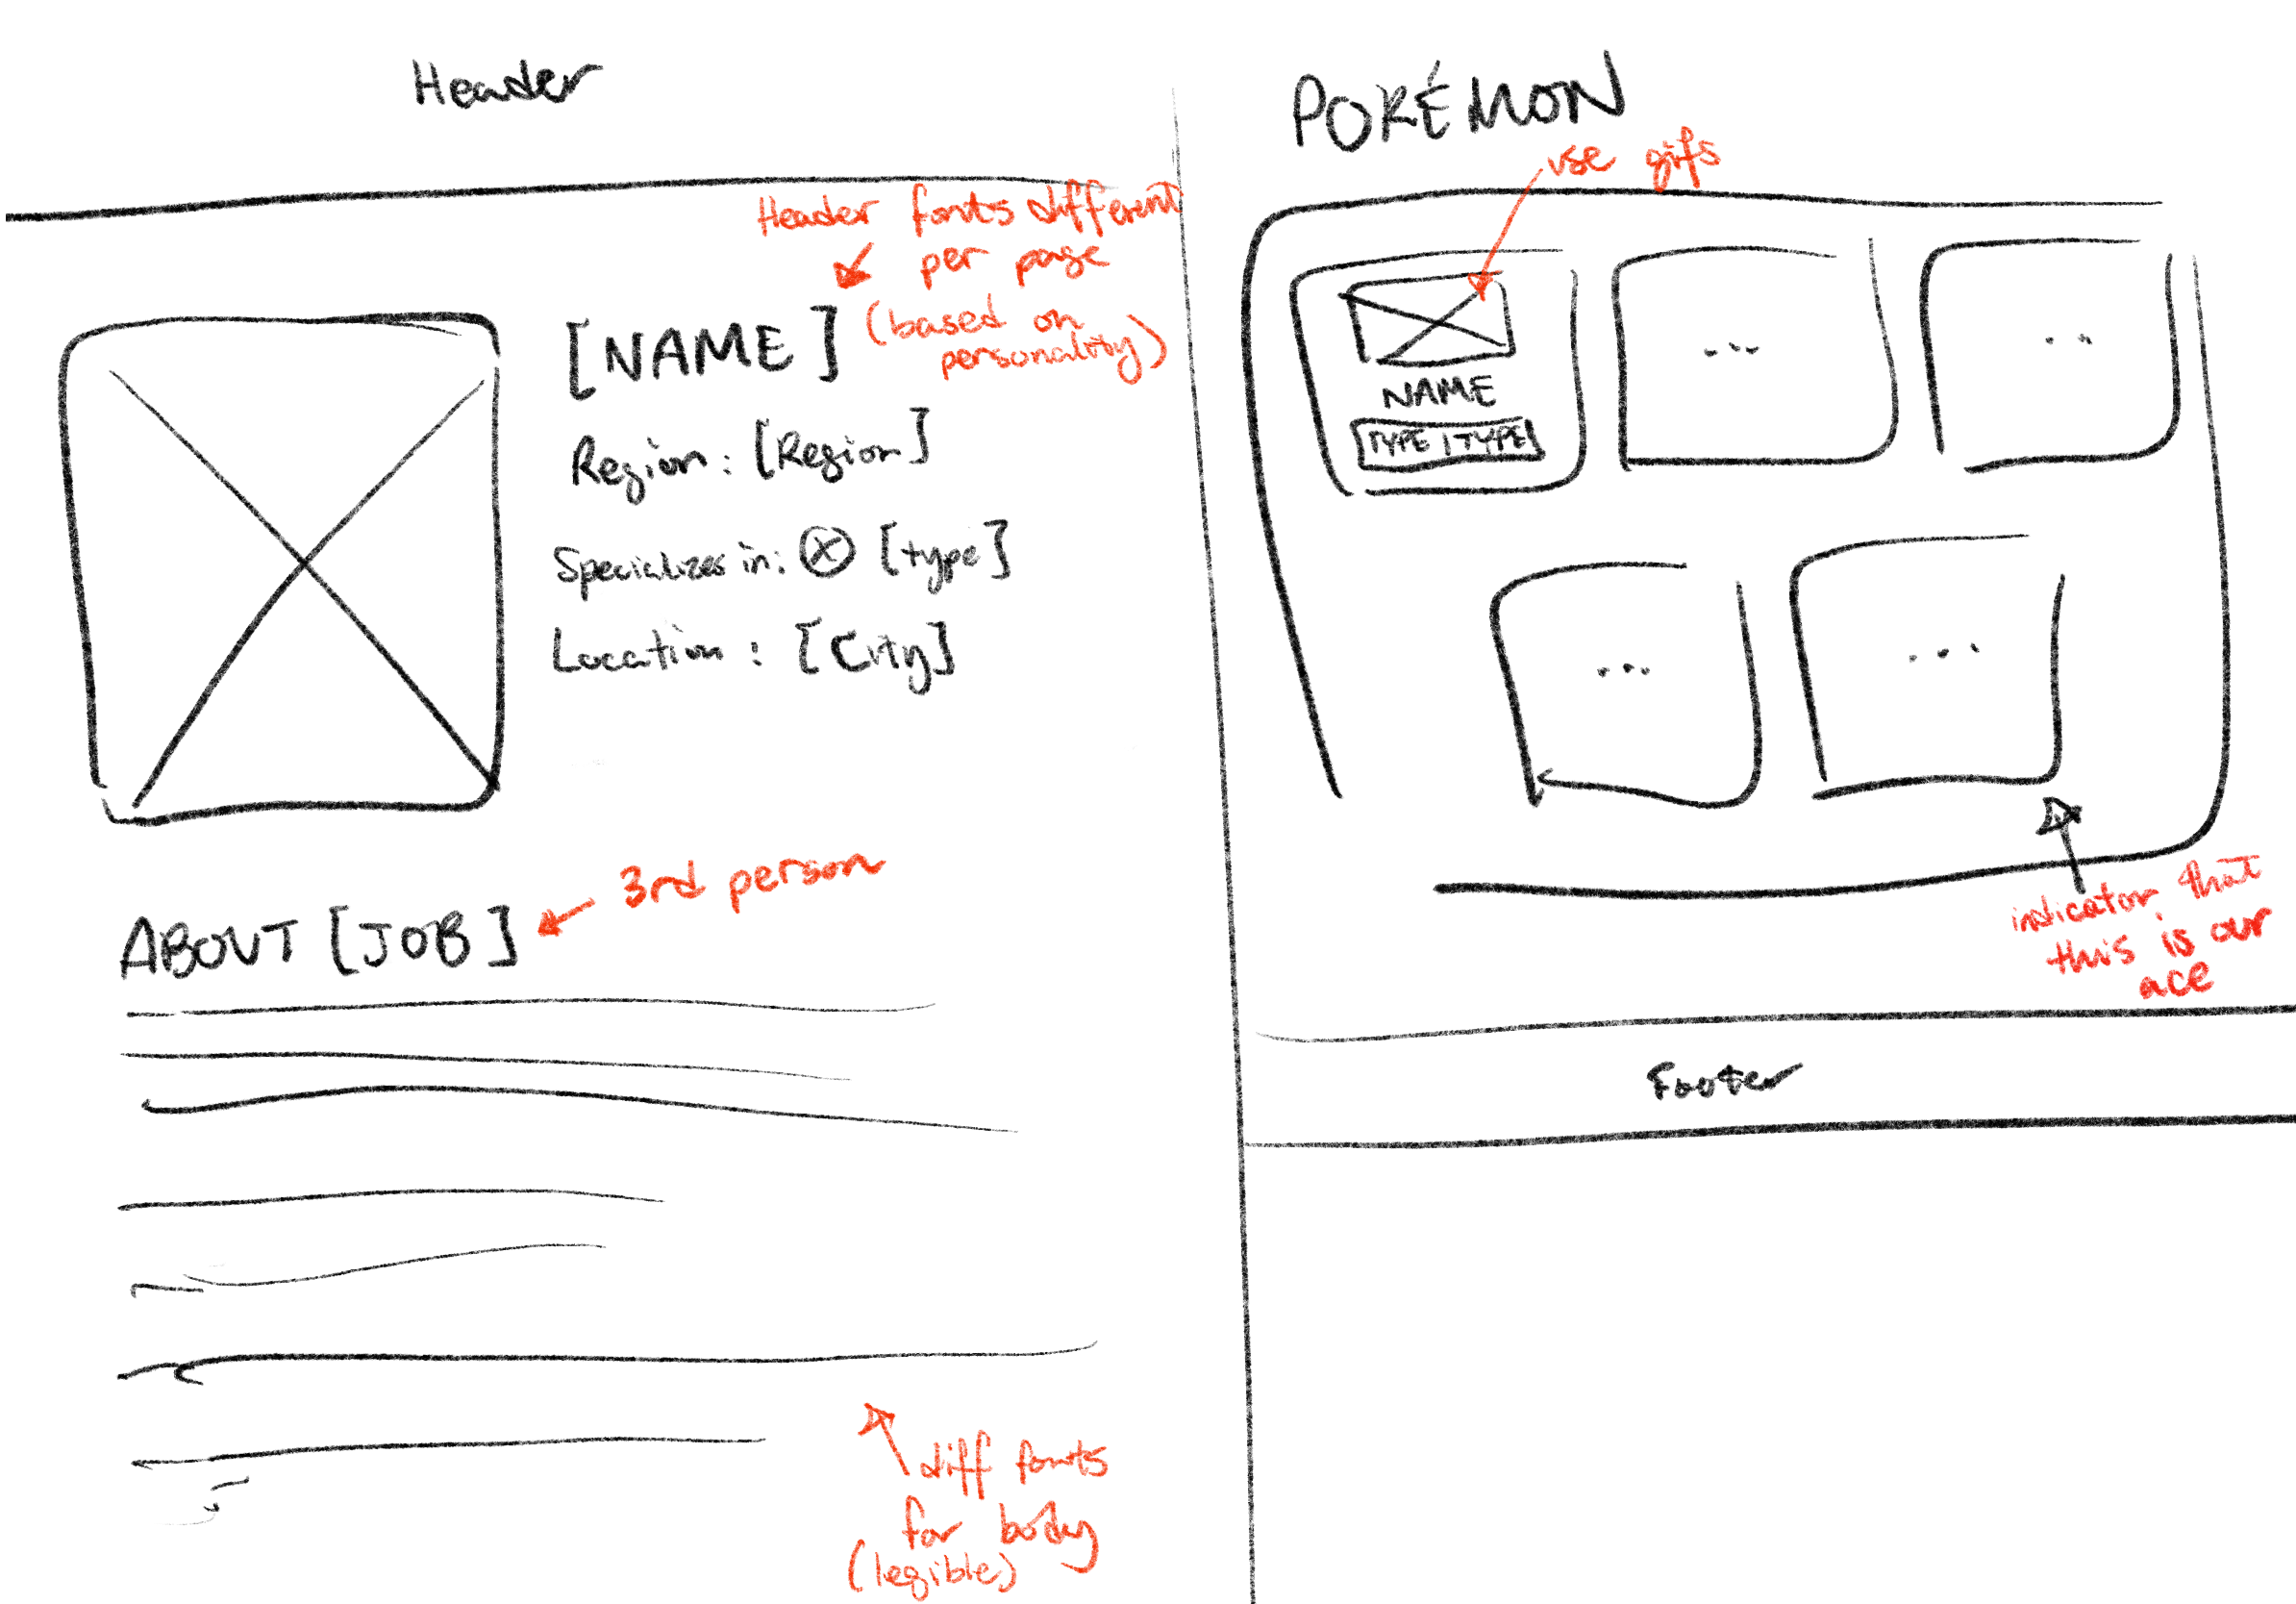 Header
Header fonts different
per page
(based on
personality)
[NAME]
Region: [Region]
Specializes in: [type]
Location: [City]
ABOUT [JOB]
3rd person
diff fonts
for body
(legible)
POKÉMON
use gifs
NAME
TYPE | TYPE
...
...
...
...
indicator that
this is our
ace
Footer